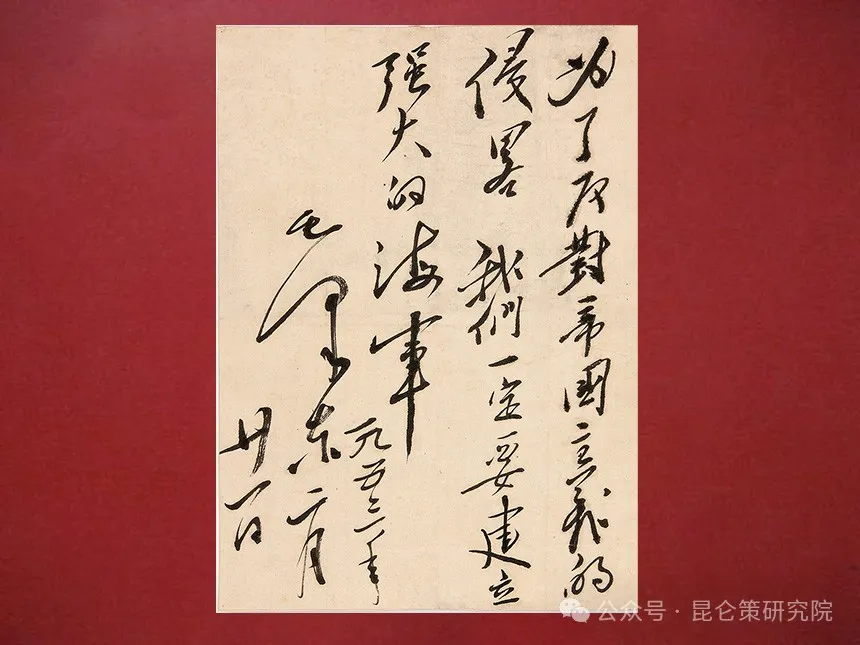 为了反對帝國主義的
侵畧 我們一定要建立
強大的海軍
一九五三年
毛泽东 二月
廿一日
公众号 · 昆仑策研究院